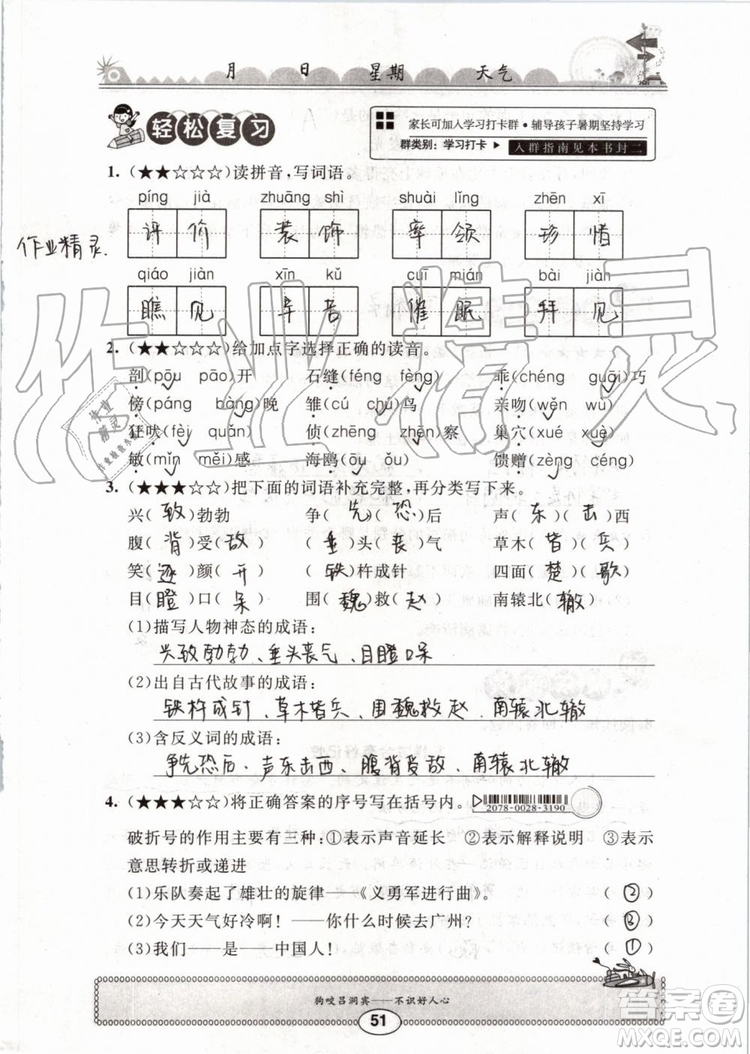 月 日 星期 天气
轻松复习
家长可加入学习打卡群·辅导孩子暑期坚持学习
群类别：学习打卡 ▶ 入群指南见本书封二
1.(★★☆☆☆)读拼音，写词语。
píng jià zhuāng shì shuài lǐng zhēn xī
评价 装饰 率领 珍惜
作业精灵.
qiáo jiàn xīn kǔ cuī mián bài jiàn
瞧见 辛苦 催眠 拜见
2.(★★☆☆☆)给加点字选择正确的读音。
剖(pōu pāo)开 石缝(féng fèng) 乖(chéng guāi)巧
傍(páng bàng)晚 雏(cú chú)鸟 亲吻(wěn wù)
狂吠(fèi quǎn) 侦(zhēng zhēn)察 巢穴(xué xuè)
敏(mǐn měi)感 海鸥(ōu ǒu) 馈赠(zèng céng)
3.(★★★☆☆)把下面的词语补充完整，再分类写下来。
兴(致)勃勃 争(先)(恐)后 声(东)(击)西
腹(背)受(敌) (垂)头(丧)气 草木(皆)(兵)
笑(逐)颜(开) (铁)杵成针 四面(楚)(歌)
目(瞪)口(呆) 围(魏)救(赵) 南辕北(辙)
(1)描写人物神态的成语：
兴致勃勃、垂头丧气、目瞪口呆
(2)出自古代故事的成语：
铁杵成针、草木皆兵、围魏救赵、南辕北辙
(3)含反义词的成语：
争先恐后、声东击西、腹背受敌、南辕北辙
4.(★★★☆☆)将正确答案的序号写在括号内。
2078-0028-3190
破折号的作用主要有三种：①表示声音延长 ②表示解释说明 ③表示
意思转折或递进
(1)乐队奏起了雄壮的旋律——《义勇军进行曲》。 (②)
(2)今天天气好冷啊！——你什么时候去广州？ (③)
(3)我们——是——中国人！ (①)
狗咬吕洞宾——不识好人心
51
作业精灵
答案圈